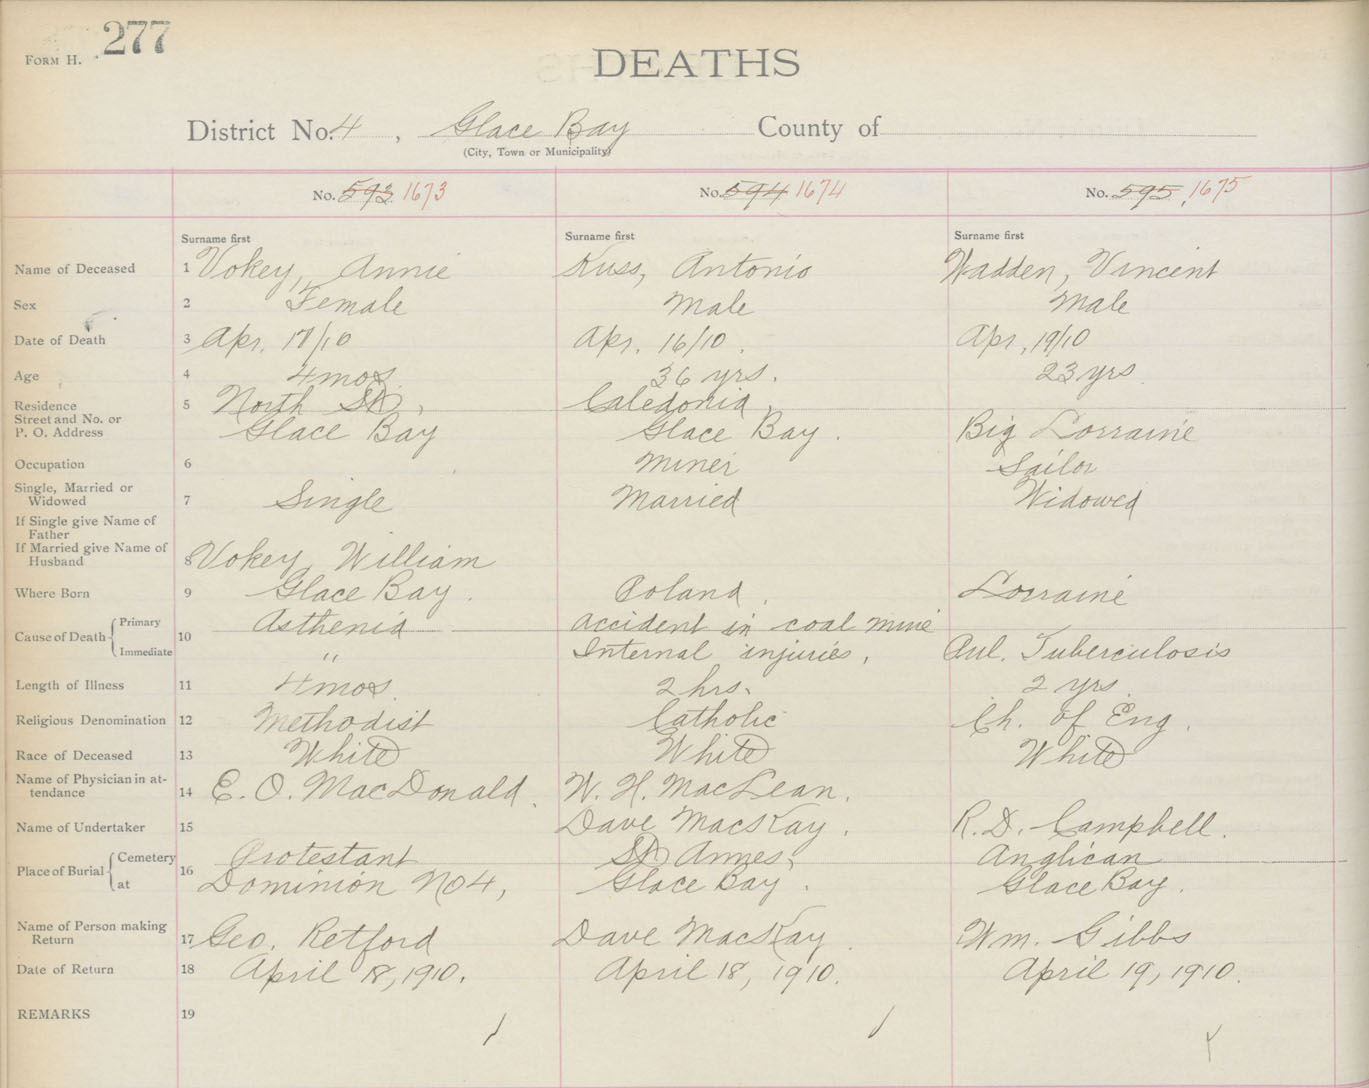 FORM H. 277
DEATHS
District No. 4, Glace Bay County of
(City, Town or Municipality)
No. 593 1673 No. 594 1674 No. 595, 1675
Surname first Surname first Surname first
Name of Deceased 1 Vokey, Annie Kuss, Antonio Wadden, Vincent
Sex 2 Female Male Male
Date of Death 3 Apr. /10 Apr. 16/10. Apr, 19/10
Age 4 4mos 36 yrs. 23 yrs
Residence 5 North St, Caledonia,
Street and No. or
P. O. Address Glace Bay Glace Bay. Big Lorraine
Occupation 6 Miner Sailor
Single, Married or
Widowed 7 Single Married Widowed
If Single give Name of
Father
If Married give Name of
Husband 8 Vokey, William
Where Born 9 Glace Bay. Poland. Lorraine
Cause of Death 10 Primary Asthenia accident in coal mine
Immediate " Internal injuries. Pul. Tuberculosis
Length of Illness 11 4mos. 2 hrs. 2 yrs.
Religious Denomination 12 Methodist Catholic Ch. of Eng.
Race of Deceased 13 White White White
Name of Physician in at-
tendance 14 E. O. MacDonald. W. H. MacLean.
Name of Undertaker 15 Dave MacKay. R. D. Campbell.
Place of Burial 16 Cemetery Protestant St Annes, Anglican
at Dominion No 4, Glace Bay. Glace Bay.
Name of Person making
Return 17 Geo. Retford Dave MacKay. Wm. Gibbs
Date of Return 18 April 18, 1910. April 18, 1910. April 19, 1910.
REMARKS 19